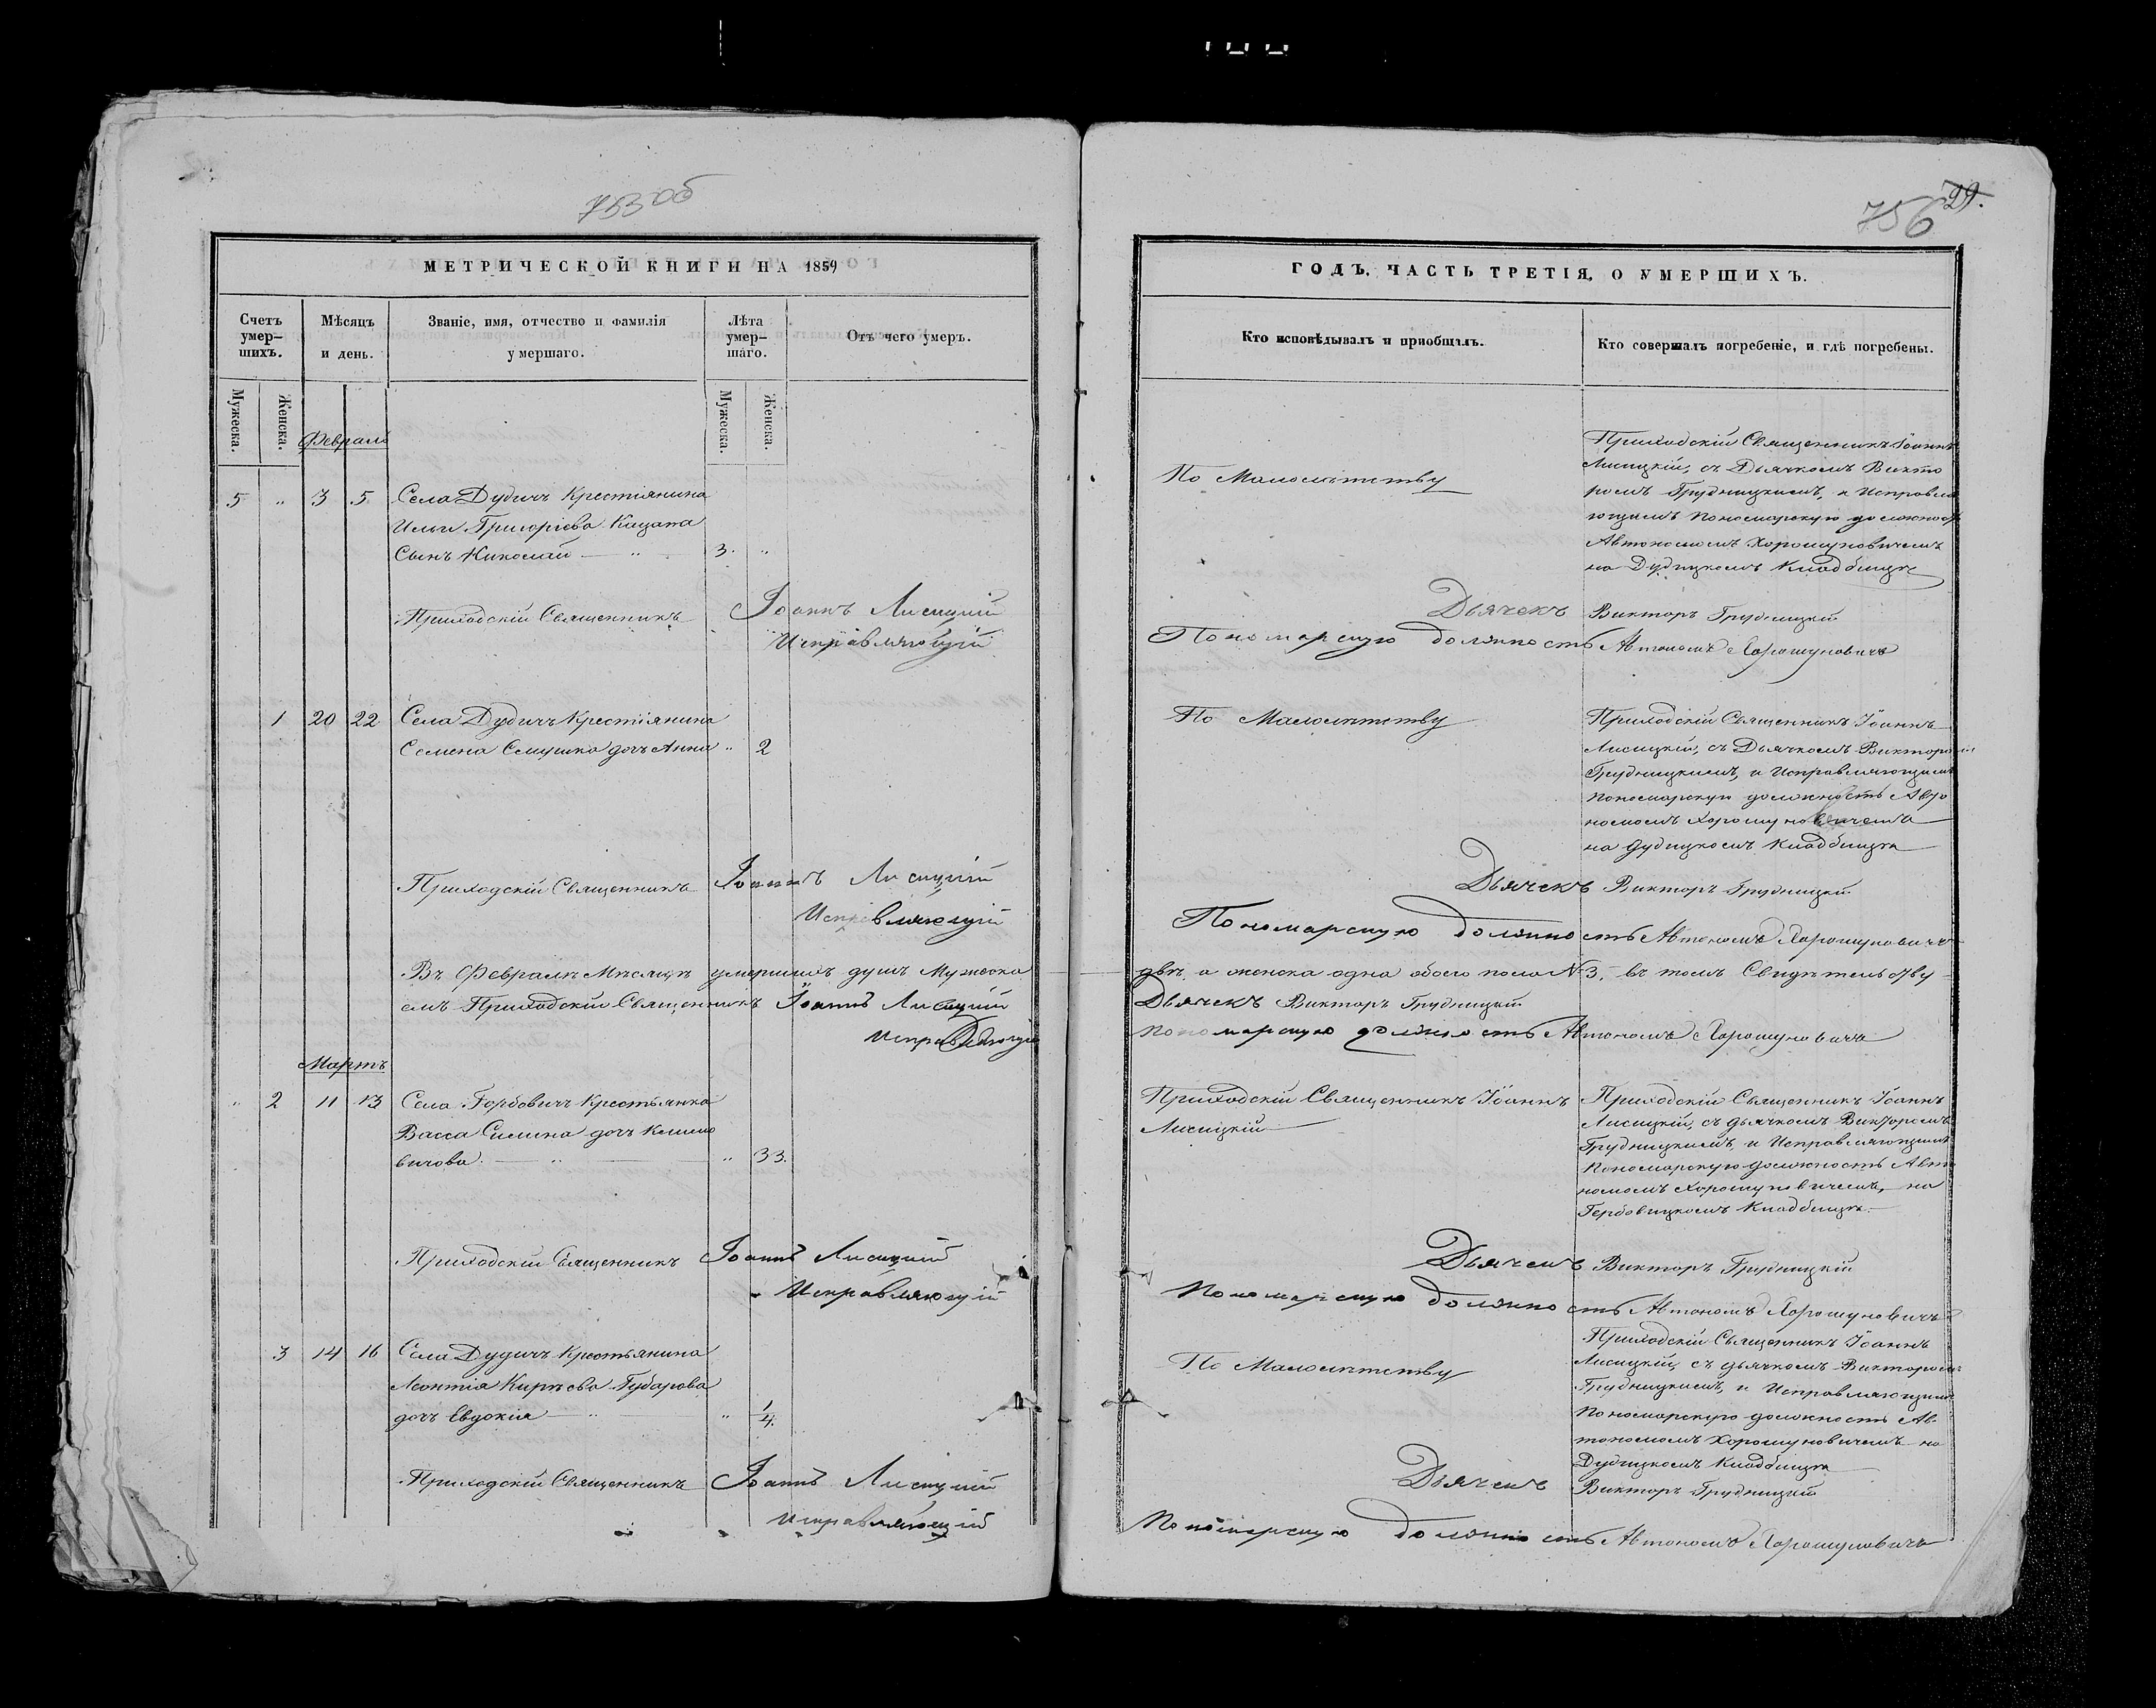 753 об
МЕТРИЧЕСКОЙ КНИГИ НА 1859
Счетъ умер-шихъ.
Мѣсяцъ и день.
Званіе, имя, отчество и фамилія умершаго.
Лѣта умер-шаго.
Отъ чего умеръ.
Мужеска.
Женска.
Мужеска.
Женска.
Февраль
5 " 3 5 Села Дудичъ Крестіянина
Ильи Григоріева Кацапа
Сынъ Николай — " 3. "
Приходскій Священникъ Іоаннъ Лисицкій
Исправляющій
1 20 22 Села Дудичъ Крестіянина
Семена Семушка дочъ Анна " 2
Приходскій Священникъ Іоаннъ Лисицкій
Исправляющій
Въ Февралѣ Мѣсяцѣ умершихъ душъ Мужеска
емъ Приходскій Священникъ Іоаннъ Лисицкій
Исправляющій
Мартъ
" 2 11 13 Села Горбовичъ Крестьянка
Васса Силина дочъ Климо
вичова. — " — " 33.
Приходскій Священникъ Іоаннъ Лисицкій
Исправляющій
3 14 16 Села Дудичъ Крестьянина
Леонтія Кирѣева Губарова
дочъ Евдокія — " " 1/4.
Приходскій Священникъ Іоаннъ Лисицкій
Исправляющій
756 29.
ГОДЪ. ЧАСТЬ ТРЕТІЯ, О УМЕРШИХЪ.
Кто исповѣдывалъ и пріобщалъ.
Кто совершалъ погребеніе, и гдѣ погребены.
По Малолѣтству
Приходскій Священникъ Іоаннъ
Лисицкій, съ Дьячкомъ Викто
ромъ Грудницкимъ, и Исправля
ющимъ Пономарскую должность
Автономомъ Хорошуновичемъ
на Дудицкомъ Кладбищѣ
Дьячекъ Викторъ Грудницкій
Пономарскую должность Автономъ Хорошуновичъ
По Малолѣтству
Приходскій Священникъ Іоаннъ
Лисицкій, съ Дьячкомъ Викторомъ
Грудницкимъ, и Исправляющимъ
Пономарскую должность Авто
номомъ Хорошуновичемъ
на Дудицкомъ Кладбищѣ
Дьячекъ Викторъ Грудницкій
Пономарскую должность Автономъ Хорошуновичъ
двѣ, а женска одна обоего пола № 3, въ томъ Свидѣтельству
Дьячекъ Викторъ Грудницкій
Пономарскую должность Автономъ Хорошуновичъ
Приходскій Священникъ Іоаннъ
Лисицкій
Приходскій Священникъ Іоаннъ
Лисицкій, съ дьячкомъ Викторомъ
Грудницкимъ, и Исправляющимъ
Пономарскую должность Авто
номомъ Хорошуновичемъ, на
Горбовицкомъ Кладбищѣ.
Дьячекъ Викторъ Грудницкій
Пономарскую должность Автономъ Хорошуновичъ
По Малолѣтству
Приходскій Священникъ Іоаннъ
Лисицкій, съ дьячкомъ Викторомъ
Грудницкимъ, и Исправляющимъ
Пономарскую должность Ав
тономомъ Хорошуновичемъ на
Дудицкомъ Кладбищѣ
Дьячекъ Викторъ Грудницкій
Пономарскую должность Автономъ Хорошуновичъ